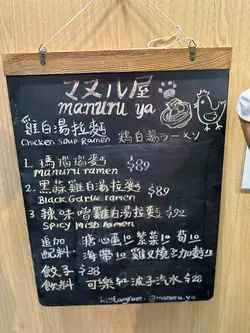 マヌル屋
manuru ya
雞白湯拉麵
Chicken Soup Ramen
鶏白湯ラーメン
1. 瑪瑙瑙麵 $89
manuru ramen
2. 黑蒜雞白湯拉麵 $89
Black Garlic ramen
3. 辣味噌雞白湯拉麵 $92
Spicy Miso ramen
追加 糖心蛋10 葱菜10 筍10
配料: 海帶10 雞叉燒
餃子 $38
飲料 可樂 波子汽水 $28
instagram: @manuru.ya